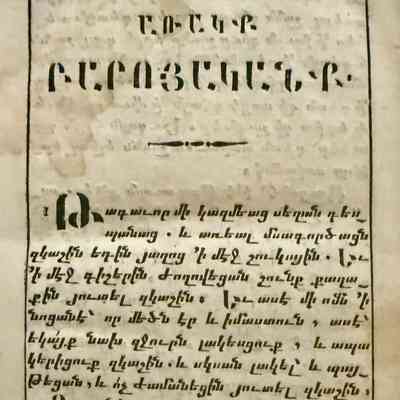 ԱՌԱԿՔ
ԲԱՐՈՅԱԿԱՆՔ
1 Թագաւոր մի կազմեաց սեղան դես֊
պանաց. և առեալ մսագործացն
զկաշին եդին յաղոց 'ի մէջ շուկային. Եւ
'ի մէջ գիշերին ժողովեցան շունք քաղա֊
քին յուտել զկաշին։ Եւ ասէ մի ոմն 'ի
նոցանէ՝ որ մեծն էր և իմաստուն, ասէ՝
եկայք նախ զջուրն լակեսցուք, և ապա
կերիցուք զկաշին. և սկսան լակել՝ և պայ֊
թեցան, և ոչ ժամանեցին յուտել զկաշին,